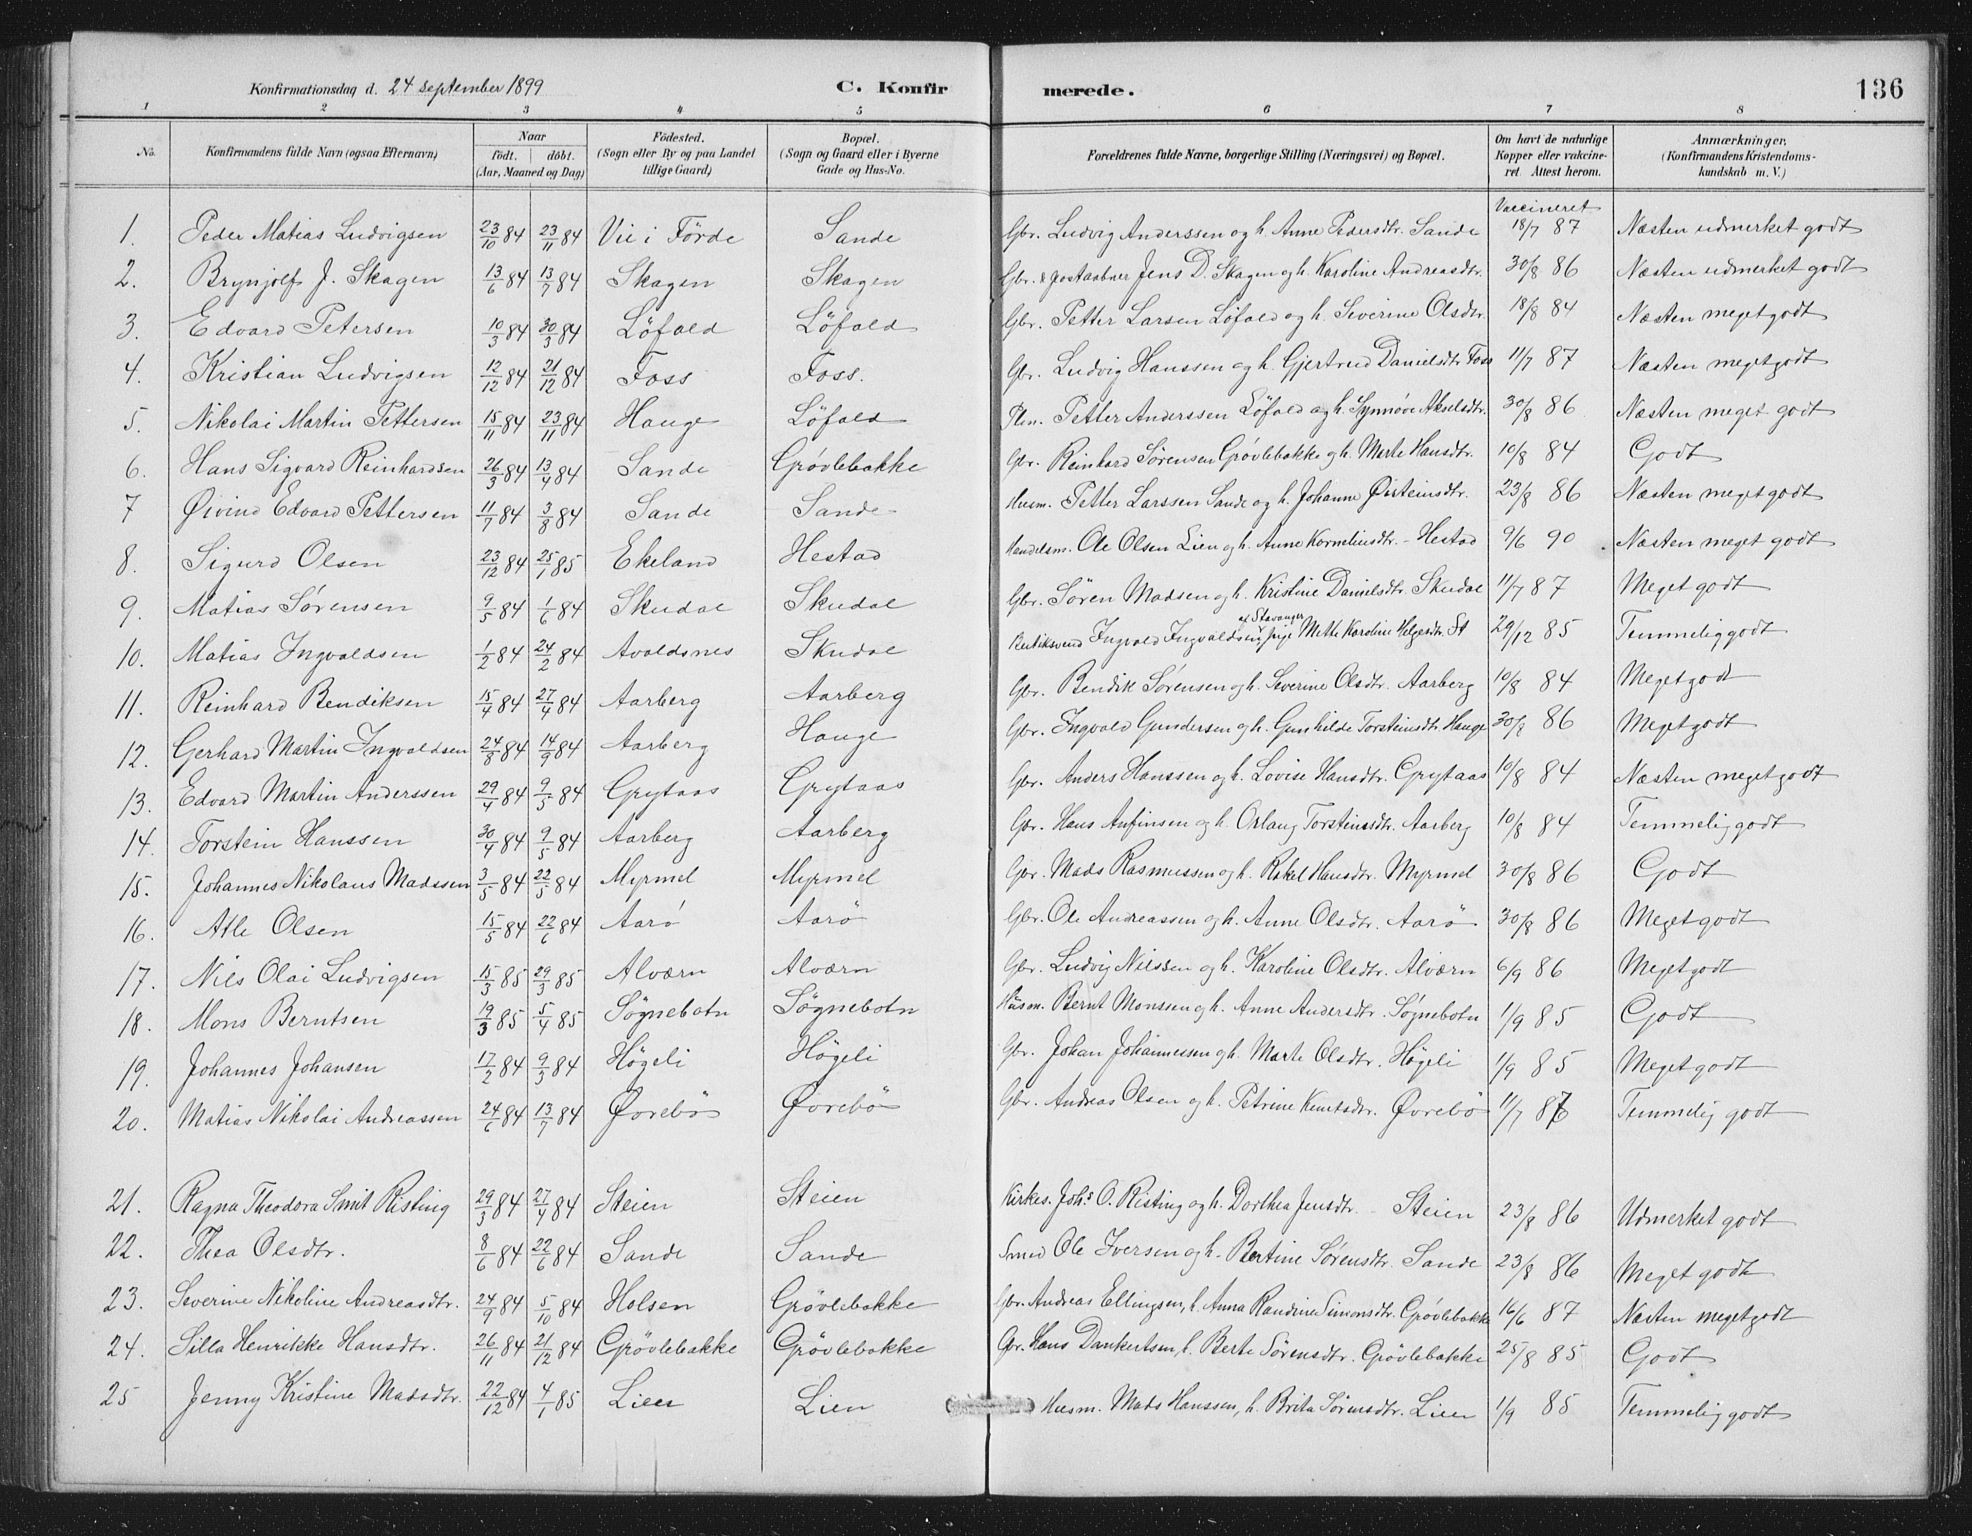 Konfirmationsdag d. 24 september 1899 C. Konfirmerede. 136
1 2 3 4 5 6 7 8
No. Konfirmandens fulde Navn (ogsaa Efternavn) Naar födt. döbt. (Aar, Maaned og Dag) Födested. (Sogn eller By og paa Landet tillige Gaard) Bopæl. (Sogn og Gaard eller i Byerne Gade og Hus-No. Forældrenes fulde Navne, borgerlige Stilling (Næringsvei) og Bopæl. Om havt de naturlige Kopper eller vakcineret. Attest herom. Anmærkninger. (Konfirmandens Kristendomskundskab m. V.)
Vaccineret
1. Peder Matias Ludvigsen 23/10 84 23/11 84 Vie i Förde Sande Gbr. Ludvig Anderssen og h. Anne Pedersdtr. Sande 18/7 87 Næsten udmerket godt
2. Brynjolf J. Skagen 13/6 84 13/7 84 Skagen Skagen Gbr. & postaabner Jens D. Skagen og h. Karoline Andreasdtr. 30/8 86 Næsten udmerket godt
3. Edvard Petersen 10/3 84 30/3 84 Löfald Löfald Gbr. Petter Larsen Löfald og h. Severine Olsdtr. 18/8 84 Næsten meget godt
4. Kristian Ludvigsen 12/12 84 21/12 84 Foss Foss. Gbr. Ludvig Hanssen og h. Gjertrud Danielsdtr. Foss 11/7 87 Næsten meget godt
5. Nikolai Martin Pettersen 15/11 84 23/11 84 Hauge Löfald Petter Anderssen Löfald og h. Synnøve Akselsdtr. 30/8 86 Næsten meget godt
6. Hans Sigvard Reinhardsen 26/3 84 13/4 84 Sande Grövlebakke Gbr. Reinhard Sörensen Grövlebakke og h. Marte Hansdtr. 10/8 84 Godt
7 Øivind Edvard Pettersen 11/7 84 3/8 84 Sande Sande Husm. Petter Larssen Sande og h. Johanne Øisteinsdtr. 23/8 86 Næsten meget godt
8. Sigurd Olsen 23/12 84 25/1 85 Ekeland Hestad Handelsm. Ole Olsen Lien og h. Anne Korneliusdtr. - Hestad 9/6 90 Næsten meget godt
9. Matias Sörensen 9/5 84 1/6 84 Skudal Skudal Gbr. Sören Madsen og h. Kristine Danielsdtr. Skudal 11/7 87 Meget godt
10. Matias Ingvaldsen 1/2 84 24/2 84 Avaldsnes Skudal Ingvald Ingvaldsen af Stavanger, pige Mette Karoline Helgesdtr. St 29/12 85 Temmelig godt
11. Reinhard Bendiksen 15/4 84 27/4 84 Aarberg Aarberg Gbr. Bendik Sörensen og h. Severine Olsdtr. Aarberg 10/8 84 Meget godt
12. Gerhard Martin Ingvaldsen 24/8 84 14/9 84 Aarberg Hauge Gbr. Ingvald Gundersen og h. Gunhilde Torsteinsdtr. Hauge 30/8 86 Meget godt
13. Edvard Martin Anderssen 29/4 84 9/5 84 Grytaas Grytaas Gbr. Anders Hanssen og h. Lovise Hansdtr. Grytaas 10/8 84 Næsten meget godt
14. Torstein Hanssen 30/4 84 9/5 84 Aarberg Aarberg Gbr. Hans Anfinsen og h. Orlaug Torsteinsdtr. Aarberg 10/8 84 Temmelig godt
15. Johannes Nikolaus Madssen 3/5 84 22/5 84 Myrmel Myrmel Gbr. Mads Rasmussen og h. Rakel Hansdtr. Myrmel 30/8 86 Godt
16. Atle Olsen 15/5 84 22/6 84 Aarö Aarö Gbr. Ole Andreassen og h. Anne Olsdtr. Aarö 30/8 86 Meget godt
17. Nils Olai Ludvigsen 15/3 85 29/3 85 Alværn Alværn Gbr. Ludvig Nilssen og h. Karoline Olsdtr. Alværn 6/9 86 Meget godt
18. Mons Berntsen 19/3 85 5/4 85 Sögnebotn Sögnebotn Husm. Bernt Monsen og h. Anne Andersdtr. Sögnebotn 1/9 85 Godt
19. Johannes Johansen 17/2 84 9/3 84 Högeli Högeli Gbr. Johan Johannessen og h. Marte Olsdtr. Högeli 1/9 85 Meget godt
20. Matias Nikolai Andreassen 24/6 84 13/7 84 Øvrebö Øvrebö Gbr. Andreas Olsen og h. Petrine Knutsdtr. Øvrebö 11/7 Temmelig godt
21. Ragna Theodora Smit Risting 29/3 84 27/4 84 Steien Steien Kirkes. Johs. O. Risting og h. Dorthea Jensdtr. - Steien 23/8 86 Udmerket godt
22. Thea Olsdtr. 8/6 84 22/6 84 Sande Sande Smed Ole Iversen og h. Bertine Sörensdtr. Sande 23/8 86 Meget godt
23. Severine Nikoline Andreasdtr. 24/9 84 5/10 84 Holsen Grövlebakke Gbr. Andreas Ellingsen, h. Anna Randine Simonsdtr. Grövlebakke 16/6 87 Næsten meget godt
24. Silla Henrikke Hansdtr. 26/11 84 21/12 84 Grövlebakke Grövlebakke Gbr. Hans Dankertsen, h. Berte Sörensdtr. Grövlebakke 25/8 85 Godt
25 Jenny Kristine Madsdtr. 22/12 84 4/1 85 Lien Lien Husm. Mads Hanssen, h. Brita Sörensdtr. Lien 1/9 85 Temmelig godt